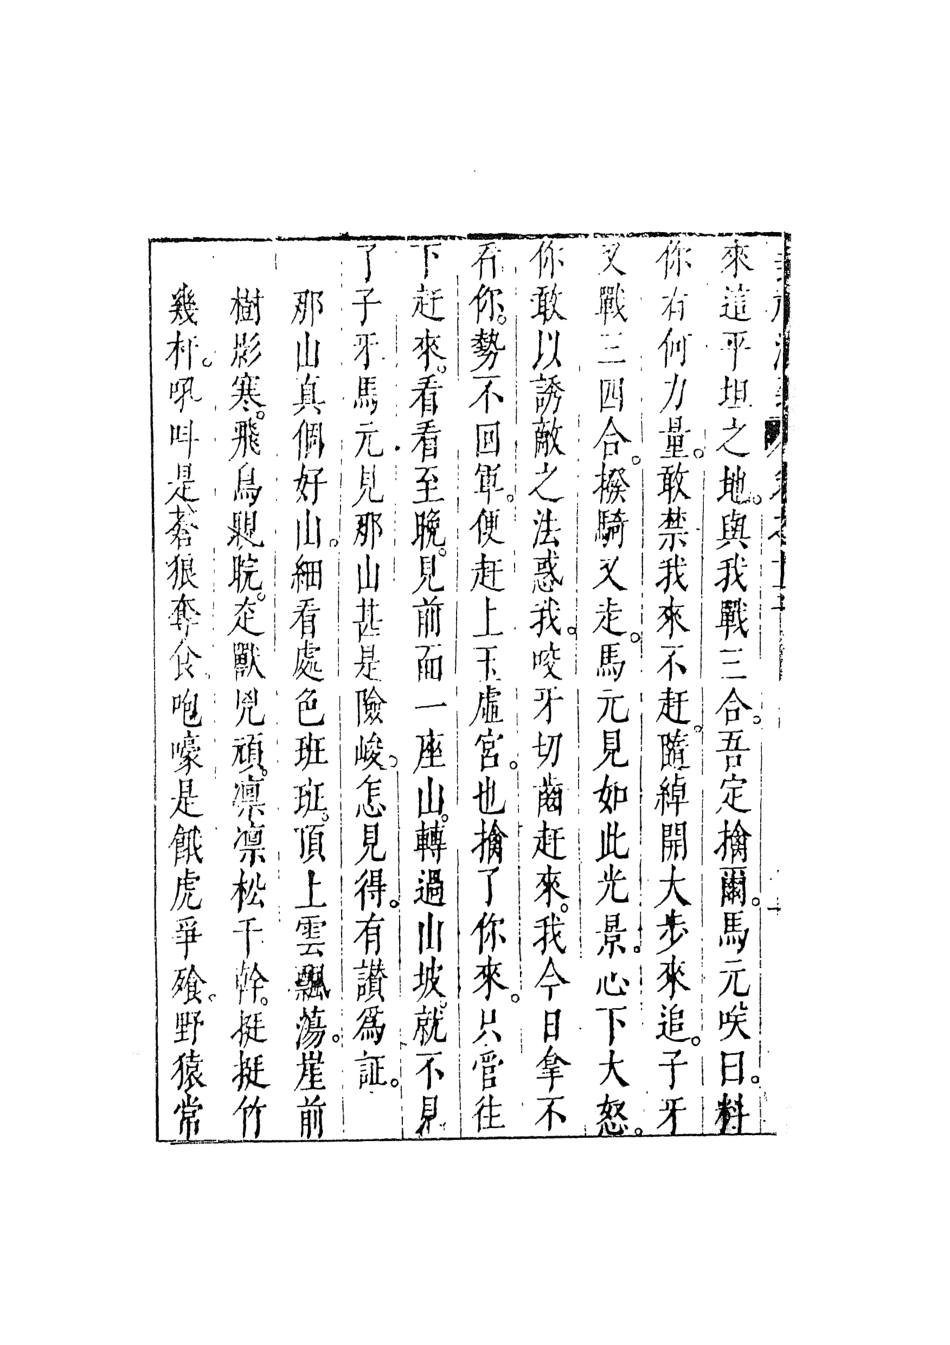 來這平坦之地。與我戰三合。吾定擒爾。馬元唉曰。料
你有何力量。敢禁我來不赶。隨綽開大步來追。子牙
又戰三四合。撥騎又走。馬元見如此光景。心下大怒。
你敢以誘敵之法惑我。咬牙切齒赶來。我今日拿不
着你。勢不回軍。便赶上玉虛宮。也擒了你來。只管往
下赶來。看看至晚。見前面一座山。轉過山坡。就不見
了子牙馬元見那山甚是險峻。怎見得。有讃為証。
那山真個好山。細看處色班班。頂上雲飄蕩。崖前
樹影寒。飛鳥睍睆。走獸兇頑。凛凛松干幹。挺挺竹
幾杆。吼呌是蒼狼奪食咆嚎是餓虎爭飱。野猿常